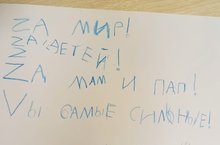 ZА МИР!
ZА ДЕТЕЙ!
ZА МАМ И ПАП!
VЫ САМЫЕ СИЛЬНЫЕ!